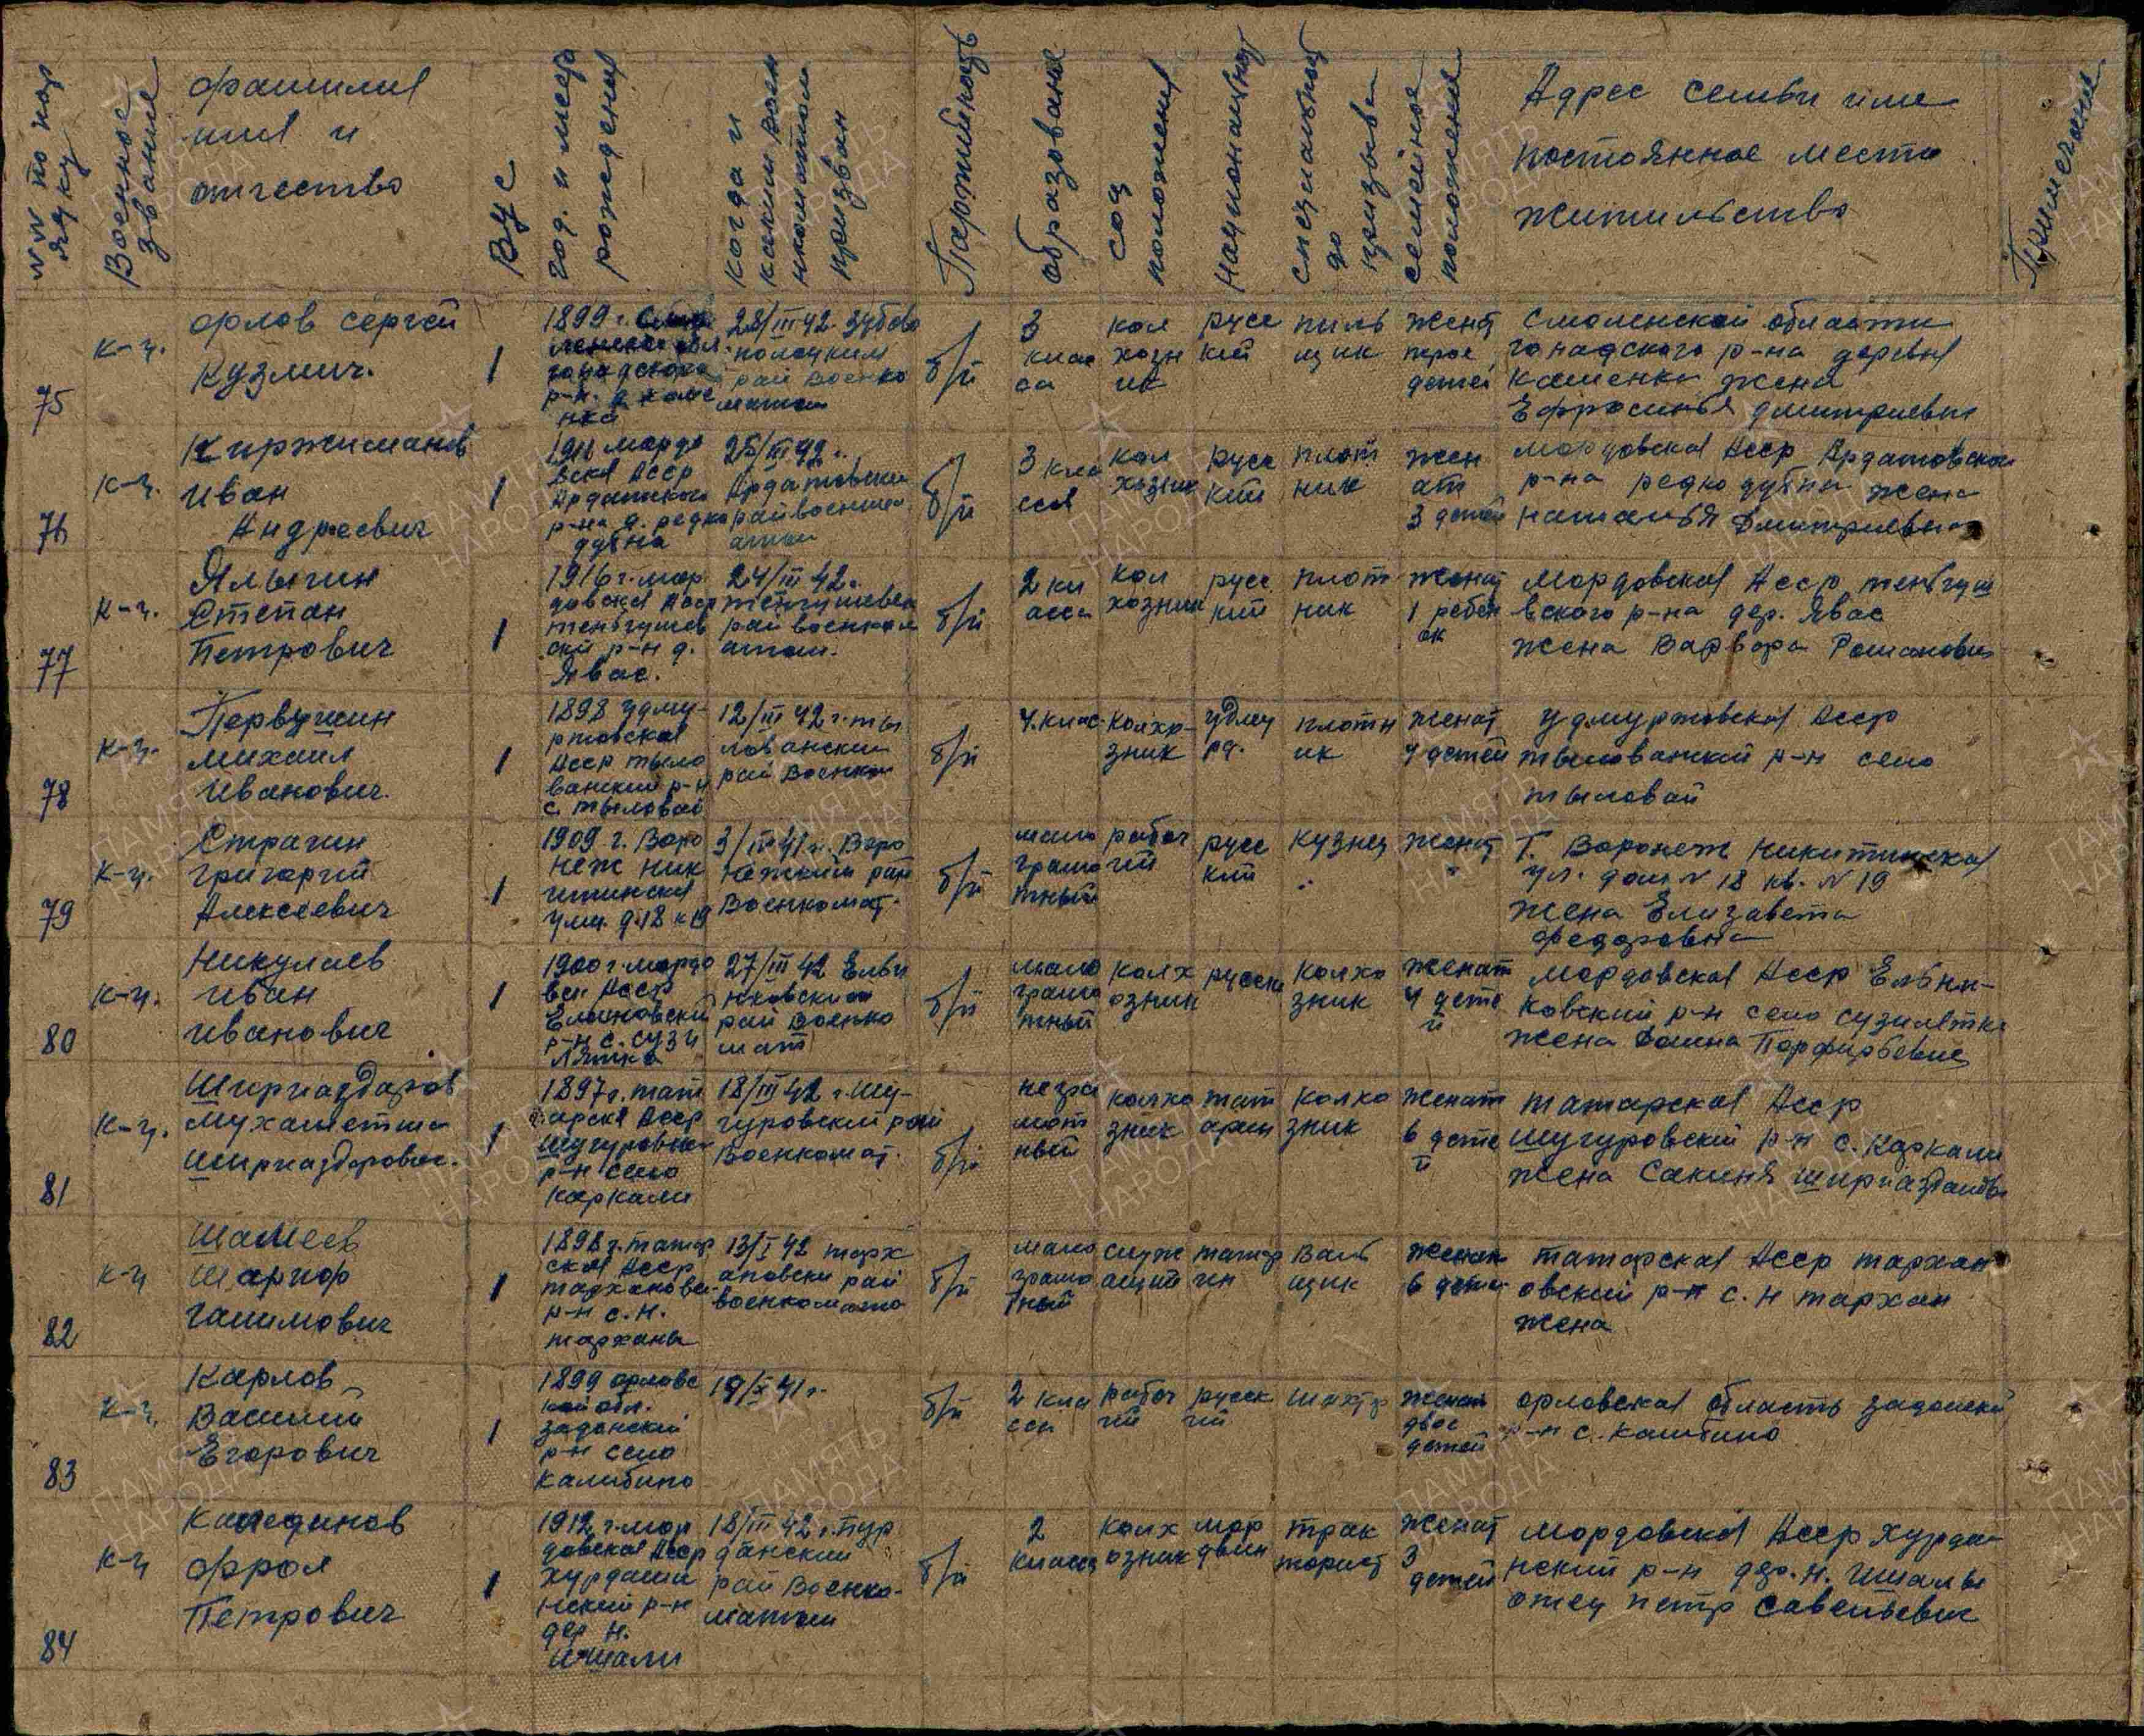 №№ по пор
ядку
Военное
звание
фамилия
имя и
отчество
ВУС
год. и место
рождения
когда и
каким воен
коматом
призван
Партийность
образование
соц
положение
национальност
специальност
до
призыва
семейное
положение
Адрес семьи или
постоянное место
жительство
Примечание
75
к-ц.
орлов сергей
Кузмич.
1
1899 г.
р-н. д каме
нка
28/III 42. Зубово
полянким
рай военко
матом
б/п
3
клас
са
кол
хозн
ик
русс
кий
пиль
щик
женат
трое
детей
Смоленской области
р-на деревня
Каменка жена
Ефросинья дмитриевн
76
к-ц.
Киржиманов
иван
Андреевич
1
1911 мордо
вска Асср
р-на д. редко
дубна
25/III 42 г.
Ардатовски
райвоенком
атом
б/п
3 кла
сса
кол
хозник
русс
кий
плот
ник
жен
ат
3 детей
мордовская Асср Ардатовском
р-на редкодубна жена
наталья Дмитриевна
77
к-ц.
Ялыгин
Степан
Петрович
1
1916 г. мор
довская Асср
теньгушев
ский р-н д.
Явас.
24/III 42 г.
теньгушевск
рай военком
атом.
б/п
2 кл
асса
кол
хозник
русс
кий
плот
ник
женат
1 ребен
ок
мордовская Асср теньгуш
вского р-на дер. Явас
жена Варвара Романовн
78
к-ц.
Первушин
михаил
иванович.
1
1898 удму
ртовская
Асср тыло
ванский р-н
с. тыловай
12/III 42 г. ты
ловански
рай Военком
б/п
4. клас
колхо-
зник
удму
рд.
плотн
ик
женат
4 детей
удмуртовская Асср
тылованский р-н село
тыловай
79
к-ц.
Страгин
григорий
Алексеевич
1
1909 г. Воро
неж ник
итинская
ули. д.18 к 19
Воро
нежским рай
Военкомат.
б/п
мало
грамо
тный
рабоч
ий
русс
кий
кузнец
женат
Г. Воронеж Никитинская
ул. дом № 18 кв. № 19
жена Елизавета
федоровна
80
к-ц.
Никулаев
иван
иванович
1
1900 г. мордо
вск Асср
Ельниковский
р-н с. сузи
лятка
27/III 42 Ельн
иковским
рай военко
мат
б/п
мало
грамо
тный
колх
озник
русски
колхо
зник
женат
4 дете
й
мордовская Асср Ельни-
ковский р-н село сузилятка
жена Домна Порфирьевна
81
к-ц.
Ширназдаров
мухаметша
Ширназдарович.
1
1897 г. тат
арска Асср
Шугуровский
р-н село
каркали
18/III 42 г. шу-
гуровский рай
военкомат.
б/п
негра
мот
ный
колхо
зник
тат
арин
колхо
зник
женат
6 дете
й
татарская Асср
шугуровский р-н с. каркали
жена Сакиня
82
к-ц
Шамеев
Шариор
галимович
1
1898 г. татар
ская Асср
тарханов
р-н с. н.
тарханы
13/I 42 тарх
ановски рай
военкоматом
б/п
мало
грамо
тный
служ
ащий
татар
ин
Валь
щик
женат
6 дете
татарская Асср тархан
овский р-н с. н тархан
жена
83
к-ц.
Карлов
Василий
Егорович
1
1899 орловс
кой обл.
задонский
р-н село
калибино
19/X 41 г.
б/п
2 кла
сса
рабоч
ий
русск
ий
шахтр
женат
двое
детей
орловская область задонский
р-н с. калибино
84
к-ц
Каледанов
фрол
Петрович
1
1912 г. мор
довская Асср
хурдаш
нский р-н
дер н.
ишали
18/III 42 г. пур
данский
рай военко-
матом
б/п
2
класса
колх
озник
мор
двин
трак
торист
женат
3
детей
мордовская Асср хурда-
нский р-н дер. н. ишалы
отец петр савельевич